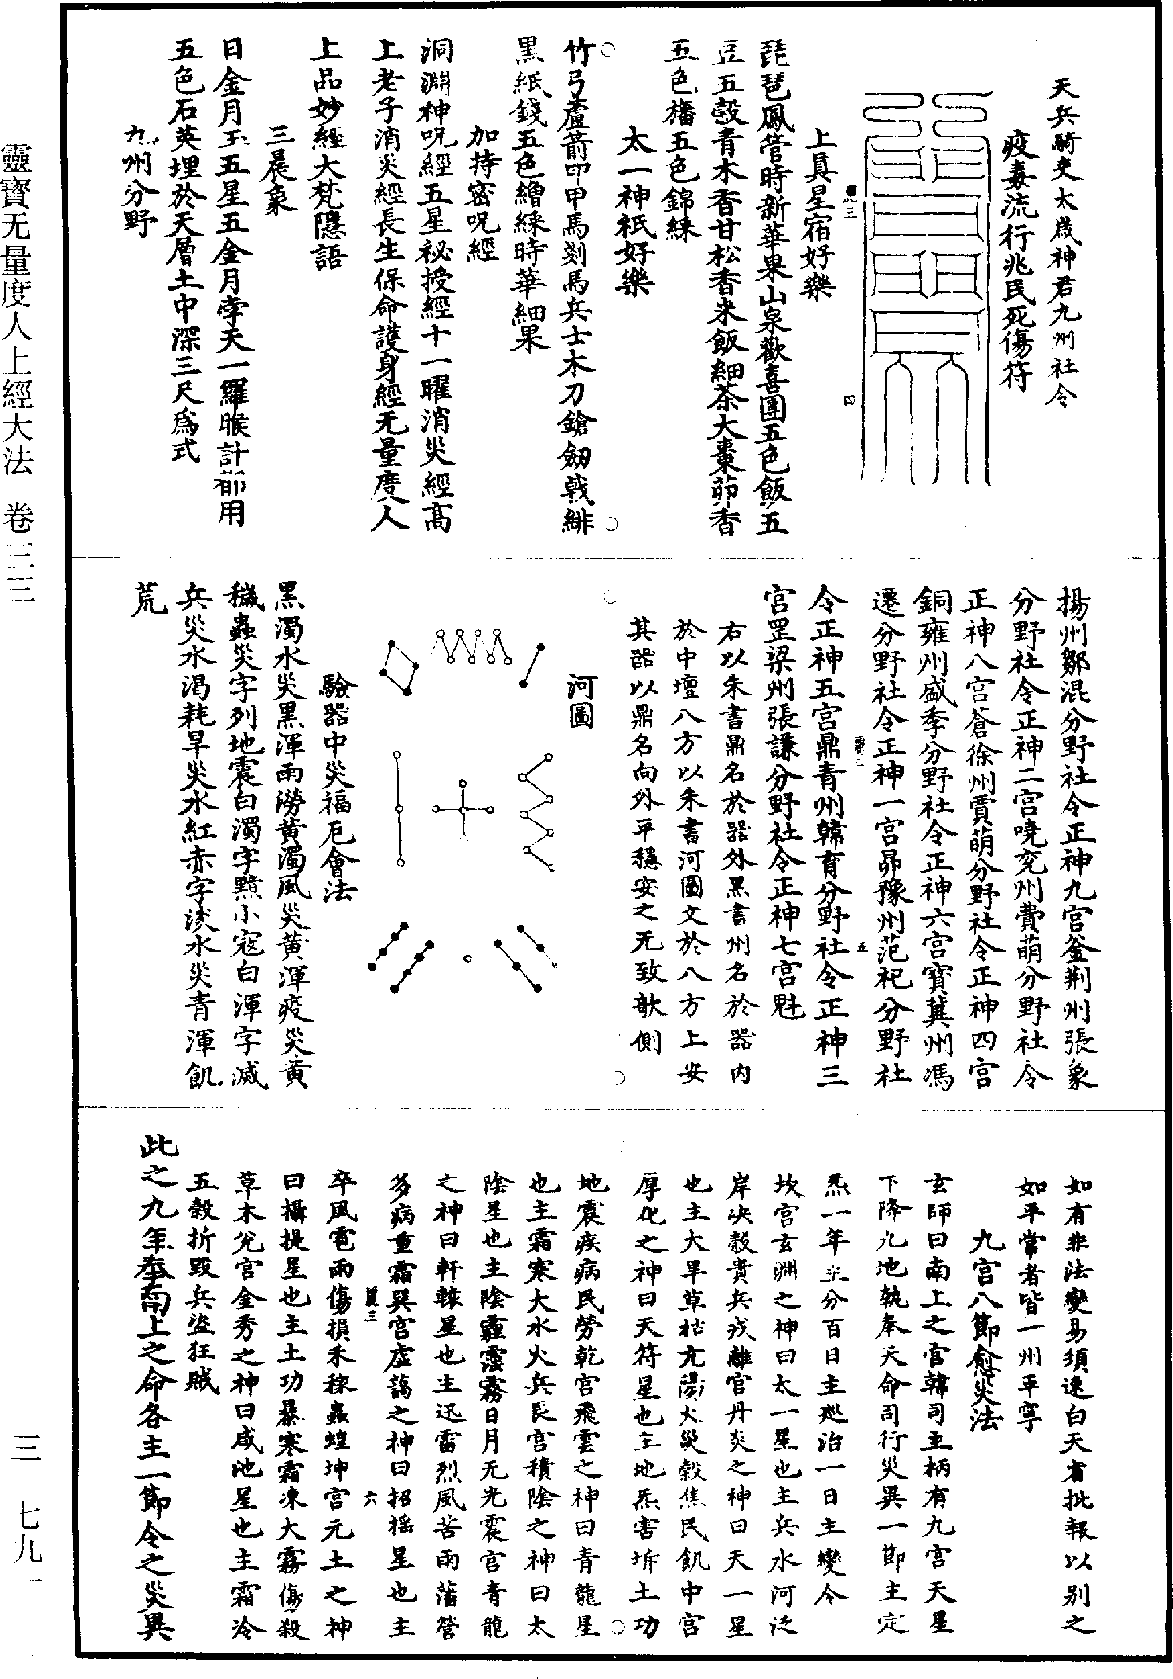 天兵騎吏太歲神君九州社令
疫毒流行兆民死傷符
上真星宿好樂
琵琶鳳管時新華果山泉歡喜團五色飯五
豆五穀青木香甘松香米飯細茶大棗茆香
五色旛五色錦綵
太一神祇好樂
竹弓蘆箭印甲馬剗馬兵士木刀鎗劒戟緋
黑紙錢五色繒綵時華細果
加持密呪經
洞淵神呪經五星祕授經十一曜消災經高
上老子消災經長生保命護身經无量度人
上品妙經大梵隱語
三晨象
日金月玉五星五金月孛天一羅睺計都用
五色石英埋於天層土中深三尺爲式
九州分野
揚州鄒混分野社令正神九宮釜荆州張象
分野社令正神二宮嘵兖州費萌分野社令
正神八宮蒼徐州賈萌分野社令正神四宮
銅雍州盛季分野社令正神六宮寶冀州馮
遷分野社令正神一宮昴豫州范祀分野社
令正神五宮鼎青州韓育分野社令正神三
宮罡梁州張謙分野社令正神七宮魁
右以朱書鼎名於器外黑書州名於器内
於中壇八方以朱書河圖文於八方上安
其器以鼎名向外平穩安之无致欹側
河圖
驗器中災福厄會法
黑濁水災黑渾雨澇黄濁風災黄渾疫災黄
穢蟲災字列地震白濁字黯小寇白渾字減
兵災水渴耗旱災水紅赤字淡水災青渾飢
荒
如有非法變易須速白天省批報以別之
如平常者皆一州平寧
九宮八節愈災法
玄師曰南上之宮韓司主柄有九宮天星
下降九地執奉天命司行災異一節主定
炁一年主分百日主廵治一日主變令
坎宮玄淵之神曰太一星也主兵水河泛
岸決穀貴兵戎離宮丹炎之神曰天一星
也主大旱草枯亢陽火災穀焦民飢中宮
厚化之神曰天符星也主地炁害坼土功
地震疾病民勞乾宮飛雲之神曰青龍星
也主霜寒大水火兵艮宮積陰之神曰太
陰星也主陰霾霧日月无光震宮青龍
之神曰軒轅星也主迅雷烈風苦雨藩營
多病重霜巽宮虛藹之神曰招摇星也主
卒風雹雨傷損禾稼蟲蝗坤宮元土之神
曰攝提星也主土功暴寒霜凍大霧傷殺
草木兊宮金秀之神曰咸池星也主霜冷
五穀折毀兵盜狂賊
此之九年奉南上之命各主一節令之災異
靈寶无量度人上經大法 卷三三
三 七九一
四
五
六